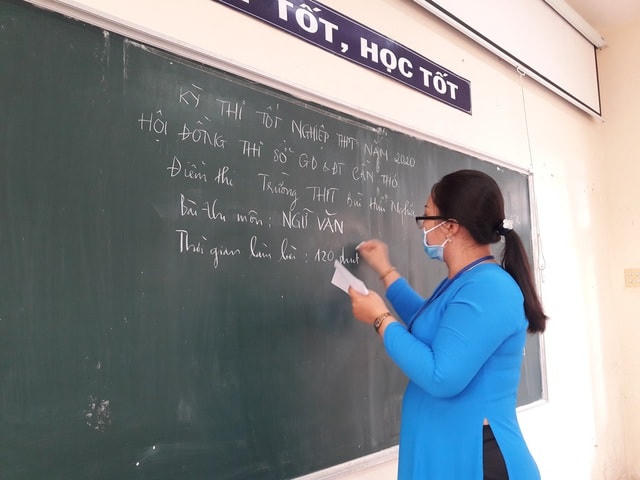 TỐT, HỌC TỐT
KỲ THI TỐT NGHIỆP THPT NĂM 2020
HỘI ĐỒNG THI SỞ GD & ĐT CẦN THƠ
Điểm thi Trường THPT Bùi Hữu Nghĩa
Bài thi môn: NGỮ VĂN
Thời gian làm bài : 120 phút